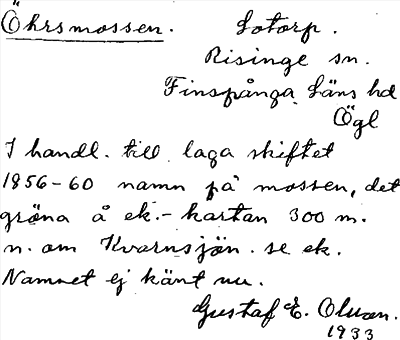 Öhrsmossen. Lotorp.
Risinge sn.
Finspånga Läns hd
Ögl
I handl. till laga skiftet
1856-60 namn på mossen, det
gröna å ek.-kartan 300 m.
n. om Kvarnsjön. se ek.
Namnet ej känt nu.
Gustaf E. Olsson.
1933